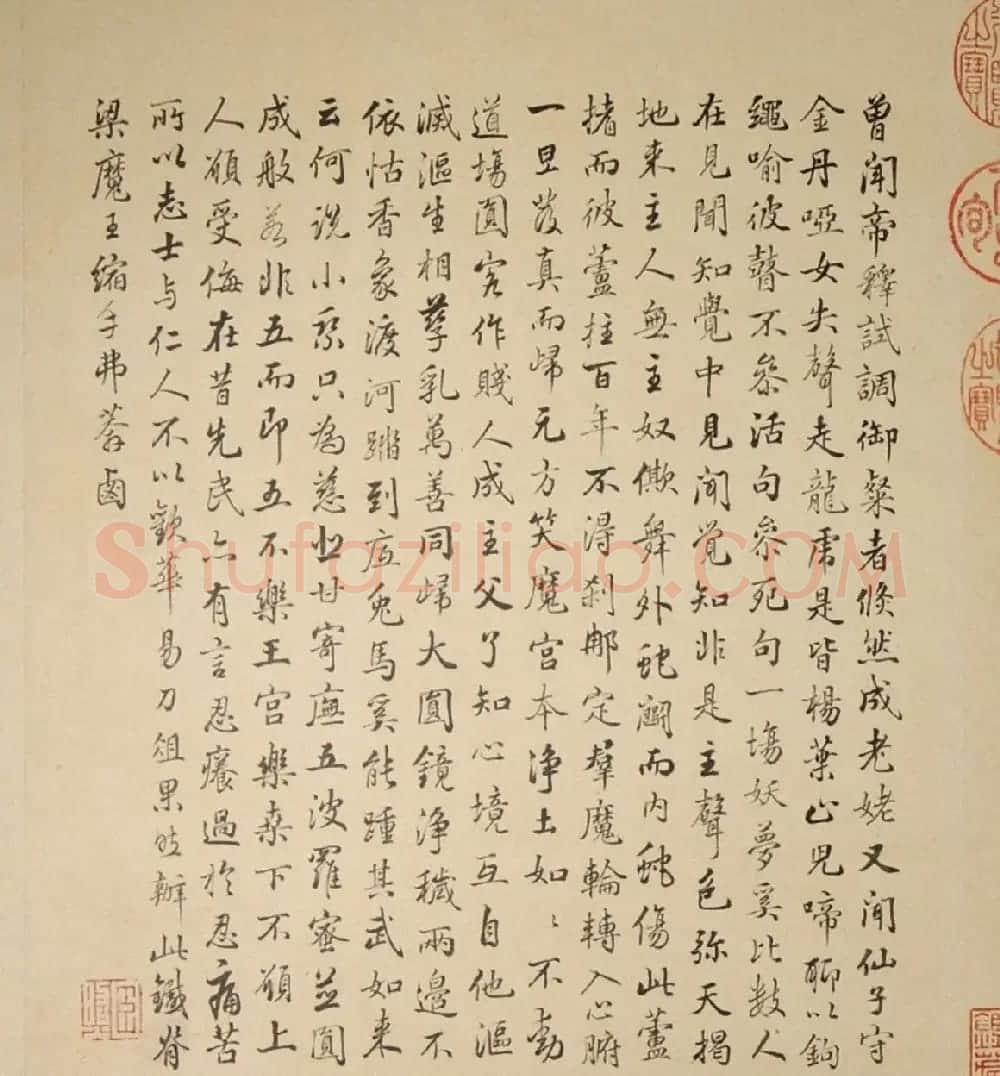 曾聞帝釋試調御粲者倐然成老姥又闻仙子守
金丹啞女失聲走龍虎是皆楊葉止児啼聊以鉤
繩喻彼聱不叅活句叅死句一塲妖夢奚比数人
在見聞知覺中見闻觉知非是主聲色弥天揭
地来主人無主奴僛舞外䖝鬭而内䖝傷此蘆
揰而彼蘆拄百年不淂刹那定羣魔輪轉入心腑
一旦發真而歸元方笑魔宮本淨土如〻不動
道塲圓客作賤人成主父了知心境互自他漚
滅漚生相孳乳萬善同歸大圓鏡淨穢兩邊不
依怙香象渡河蹋到底兔馬奚能踵其武如来
云何説小乘只為慈悲甘寄廡五波羅蜜並圓
成般若非五而即五不樂王宮樂桒下不願上
人願受侮在昔先民亦有言忍癢過扵忍痛苦
所以志士与仁人不以歡華易刀俎果能辦此鐵脊
梁魔王缩手弗蓩鹵
Shufaziliao.COM